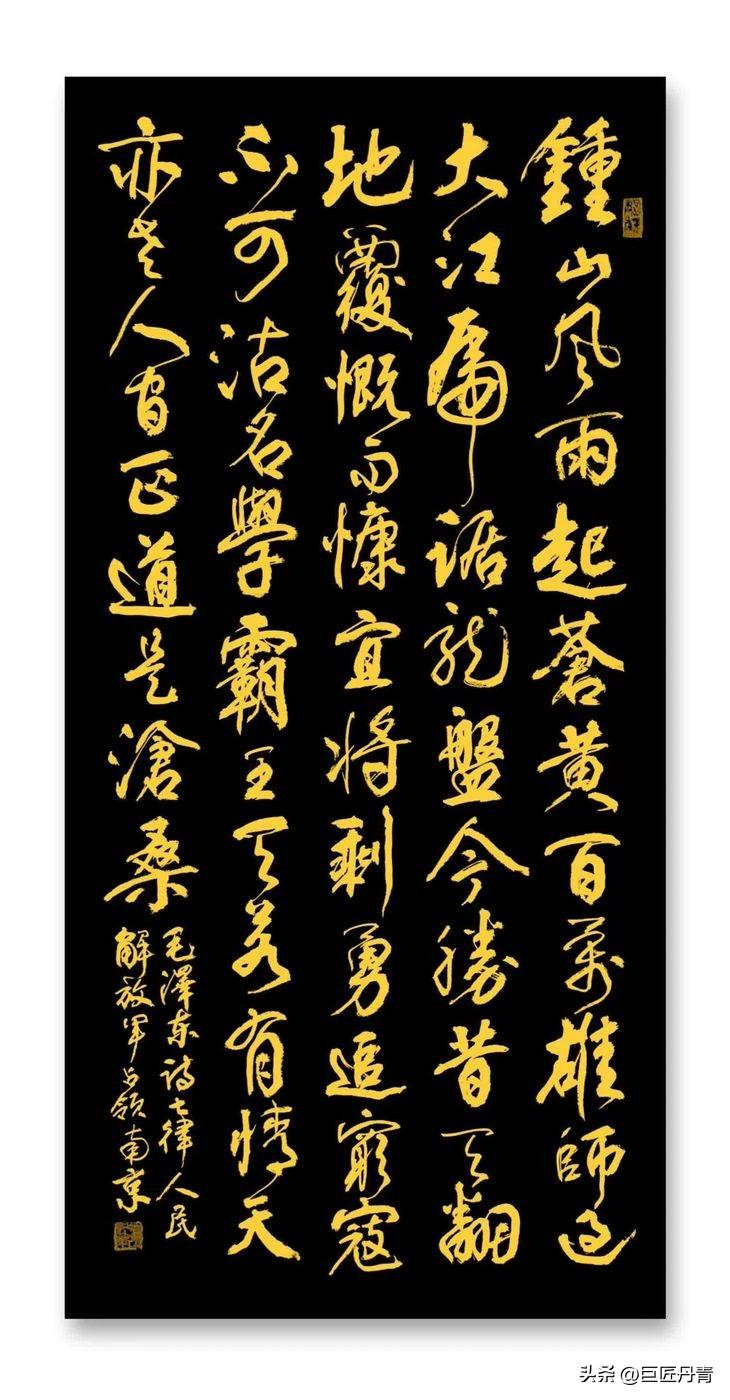 鍾山风雨起蒼黄百萬雄師過
大江虎踞龙盤今勝昔天翻
地覆慨而慷宜将剩勇追窮寇
不可沽名學霸王天若有情天
亦老人间正道是滄桑
毛澤东诗七律人民
解放军占领南京
头条 @巨匠丹青